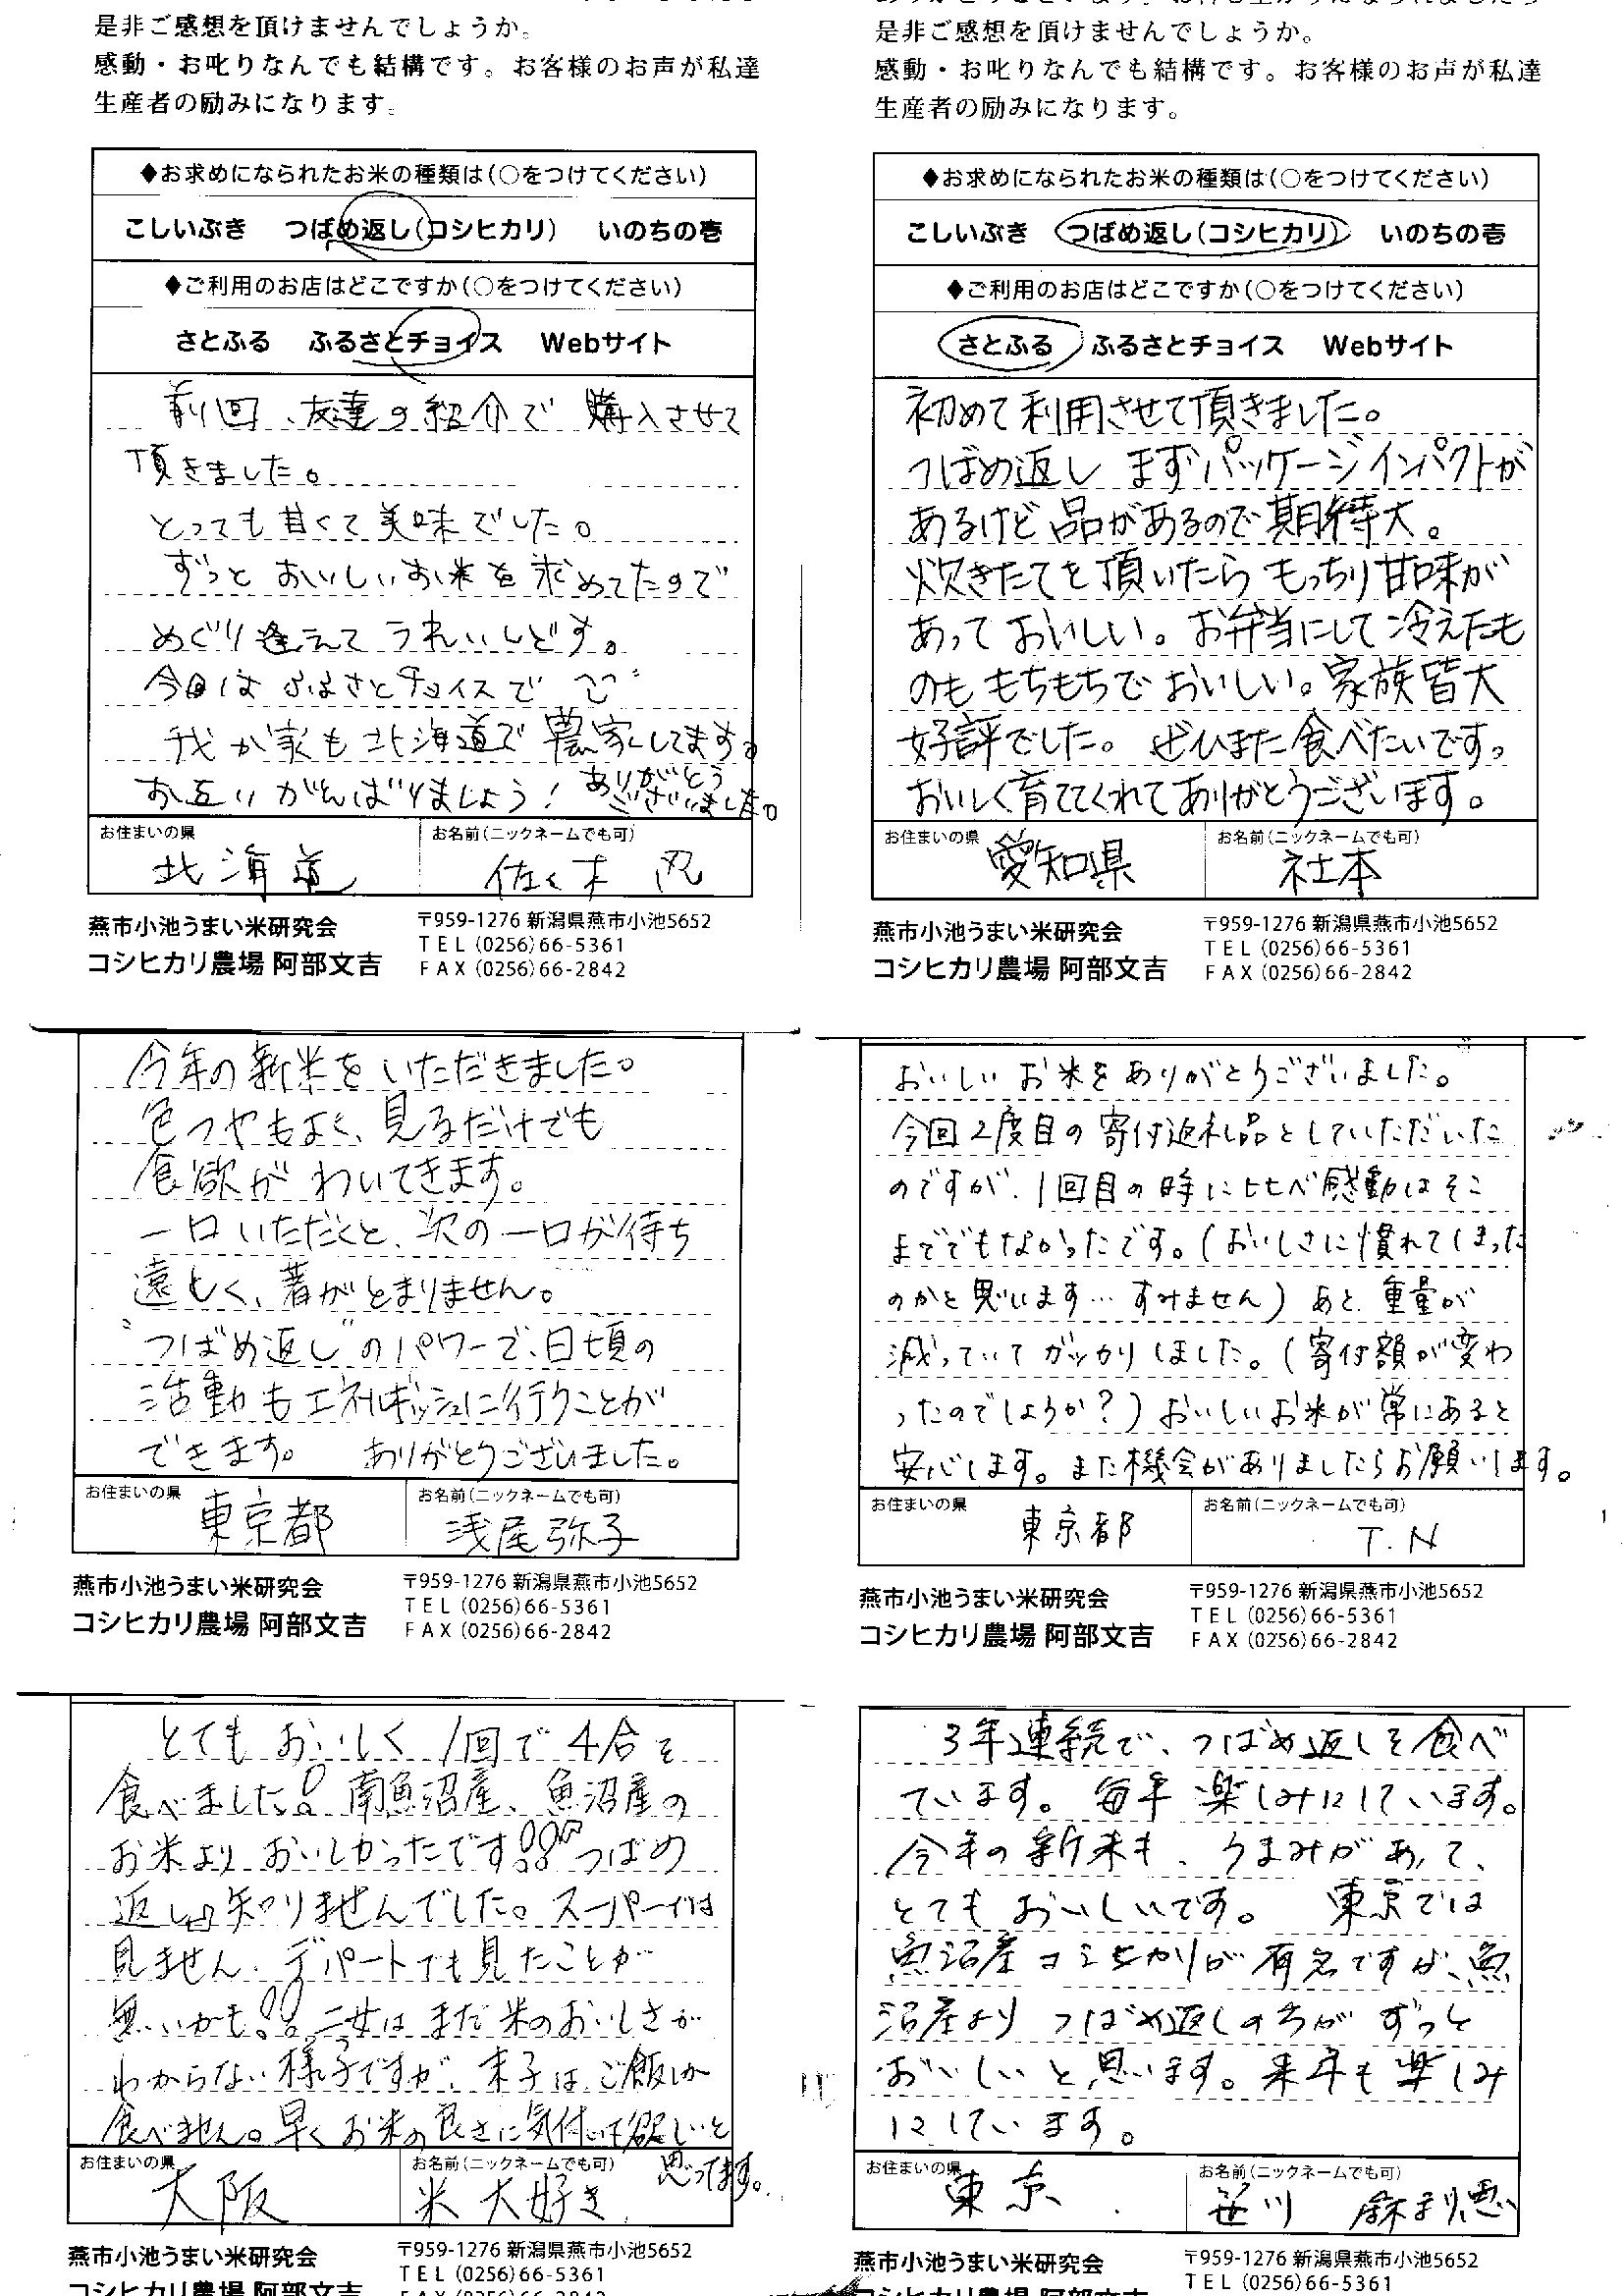 是非ご感想を頂けませんでしょうか。
感動・お叱りなんでも結構です。お客様のお声が私達
生産者の励みになります。
◆お求めになられたお米の種類は(○をつけてください)
こしいぶき つばめ返し(コシヒカリ) いのちの壱
◆ご利用のお店はどこですか(○をつけてください)
さとふる ふるさとチョイス Webサイト
前回、友達の紹介で購入させて
頂きました。
とっても甘くて美味でした。
ずっとおいしいお米を求めてたので
めぐり逢えてうれしいです。
今回はふるさとチョイスで
我が家も北海道で農家してます。
お互いがんばりましょう! ありがとう
ございました。
お住まいの県 北海道 お名前(ニックネームでも可) 佐々木 忍
燕市小池うまい米研究会 〒959-1276 新潟県燕市小池5652
TEL (0256)66-5361
コシヒカリ農場 阿部文吉 FAX (0256)66-2842
是非ご感想を頂けませんでしょうか。
感動・お叱りなんでも結構です。お客様のお声が私達
生産者の励みになります。
◆お求めになられたお米の種類は(○をつけてください)
こしいぶき つばめ返し(コシヒカリ) いのちの壱
◆ご利用のお店はどこですか(○をつけてください)
さとふる ふるさとチョイス Webサイト
初めて利用させて頂きました。
つばめ返し まずパッケージインパクトが
あるけど品があるので期待大。
炊きたてを頂いたらもっちり甘味が
あっておいしい。お弁当にして冷えたも
のももちもちでおいしい。家族皆大
好評でした。ぜひまた食べたいです。
おいしく育ててくれてありがとうございます。
お住まいの県 愛知県 お名前(ニックネームでも可) 社本
燕市小池うまい米研究会 〒959-1276 新潟県燕市小池5652
TEL (0256)66-5361
コシヒカリ農場 阿部文吉 FAX (0256)66-2842
今年の新米をいただきました。
色つやもよく、見るだけでも
食欲がわいてきます。
一口いただくと、次の一口が待ち
遠しく、箸がとまりません。
"つばめ返し"のパワーで、日頃の
活動もエネルギッシュに行うことが
できます。 ありがとうございました。
お住まいの県 東京都 お名前(ニックネームでも可) 浅尾弥子
燕市小池うまい米研究会 〒959-1276 新潟県燕市小池5652
TEL (0256)66-5361
コシヒカリ農場 阿部文吉 FAX (0256)66-2842
おいしいお米をありがとうございました。
今回2度目の寄付返礼品としていただいた
のですが、1回目の時に比べ感動はそこ
まででもなかったです。(おいしさに慣れてしまった
のかと思います…すみません)あと、重量が
減っていてガッカリしました。(寄付額が変わ
ったのでしょうか?)おいしいお米が常にあると
安心します。また機会がありましたらお願いします。
お住まいの県 東京都 お名前(ニックネームでも可) T.N
燕市小池うまい米研究会 〒959-1276 新潟県燕市小池5652
TEL (0256)66-5361
コシヒカリ農場 阿部文吉 FAX (0256)66-2842
とてもおいしく1回で4合を
食べました! 南魚沼産、魚沼産の
お米よりおいしかったです!! つばめ
返し 知りませんでした。スーパーでは
見ません。デパートでも見たことが
無いかも!! 二女はまだ米のおいしさが
わからない様子ですが、末子はご飯しか
食べません。早くお米の良さに気付いて欲しいと
思ってます。
お住まいの県 大阪 お名前(ニックネームでも可) 米大好き
燕市小池うまい米研究会 〒959-1276 新潟県燕市小池5652
TEL (0256)66-5361
コシヒカリ農場 阿部文吉
3年連続で、つばめ返しを食べ
ています。毎年楽しみにしています。
今年の新米も、うまみがあって、
とてもおいしいです。 東京では
魚沼産コシヒカリが有名ですが、魚
沼産よりつばめ返しの方がずっと
おいしいと思います。来年も楽しみ
にしています。
お住まいの県 東京 お名前(ニックネームでも可) 笹川
燕市小池うまい米研究会 〒959-1276 新潟県燕市小池5652
TEL (0256)66-5361
コシヒカリ農場 阿部文吉